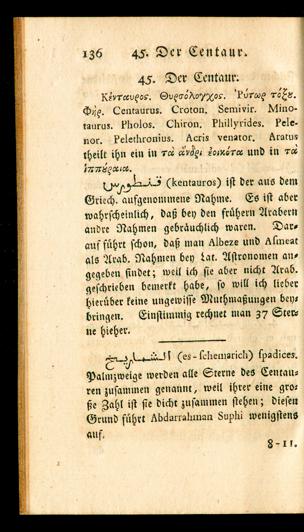 136 45. Der Centaur.
45. Der Centaur.
Κένταυρος. Θυρσόλογχος. Ῥύτωρ τόξου.
Φήρ. Centaurus. Croton. Semivir. Mino-
taurus. Pholos. Chiron. Phillyrides. Pele-
nor. Pelethronius. Acris venator. Aratus
theilt ihn ein in τὰ ἄνδρι ἐοικότα und in τὰ
ἱππύραια.
قنطورس (kentauros) ist der aus dem
Griech. aufgenommene Nahme. Es ist aber
wahrscheinlich, daß bey den frühern Arabern
andre Nahmen gebräuchlich waren. Dar-
auf führt schon, daß man Albeze und Asmeat
als Arab. Nahmen bey Lat. Astronomen an-
gegeben findet; weil ich sie aber nicht Arab.
geschrieben bemerkt habe, so will ich lieber
hierüber keine ungewisse Muthmaßungen bey-
bringen. Einstimmig rechnet man 37 Ster-
ne hieher.
الشماريخ (es-schemarich) spadices.
Palmzweige werden alle Sterne des Centau-
ren zusammen genannt, weil ihrer eine gro-
ße Zahl ist sie dicht zusammen stehen; diesen
Grund führt Abdarrahman Suphi wenigstens
auf.
8-11.